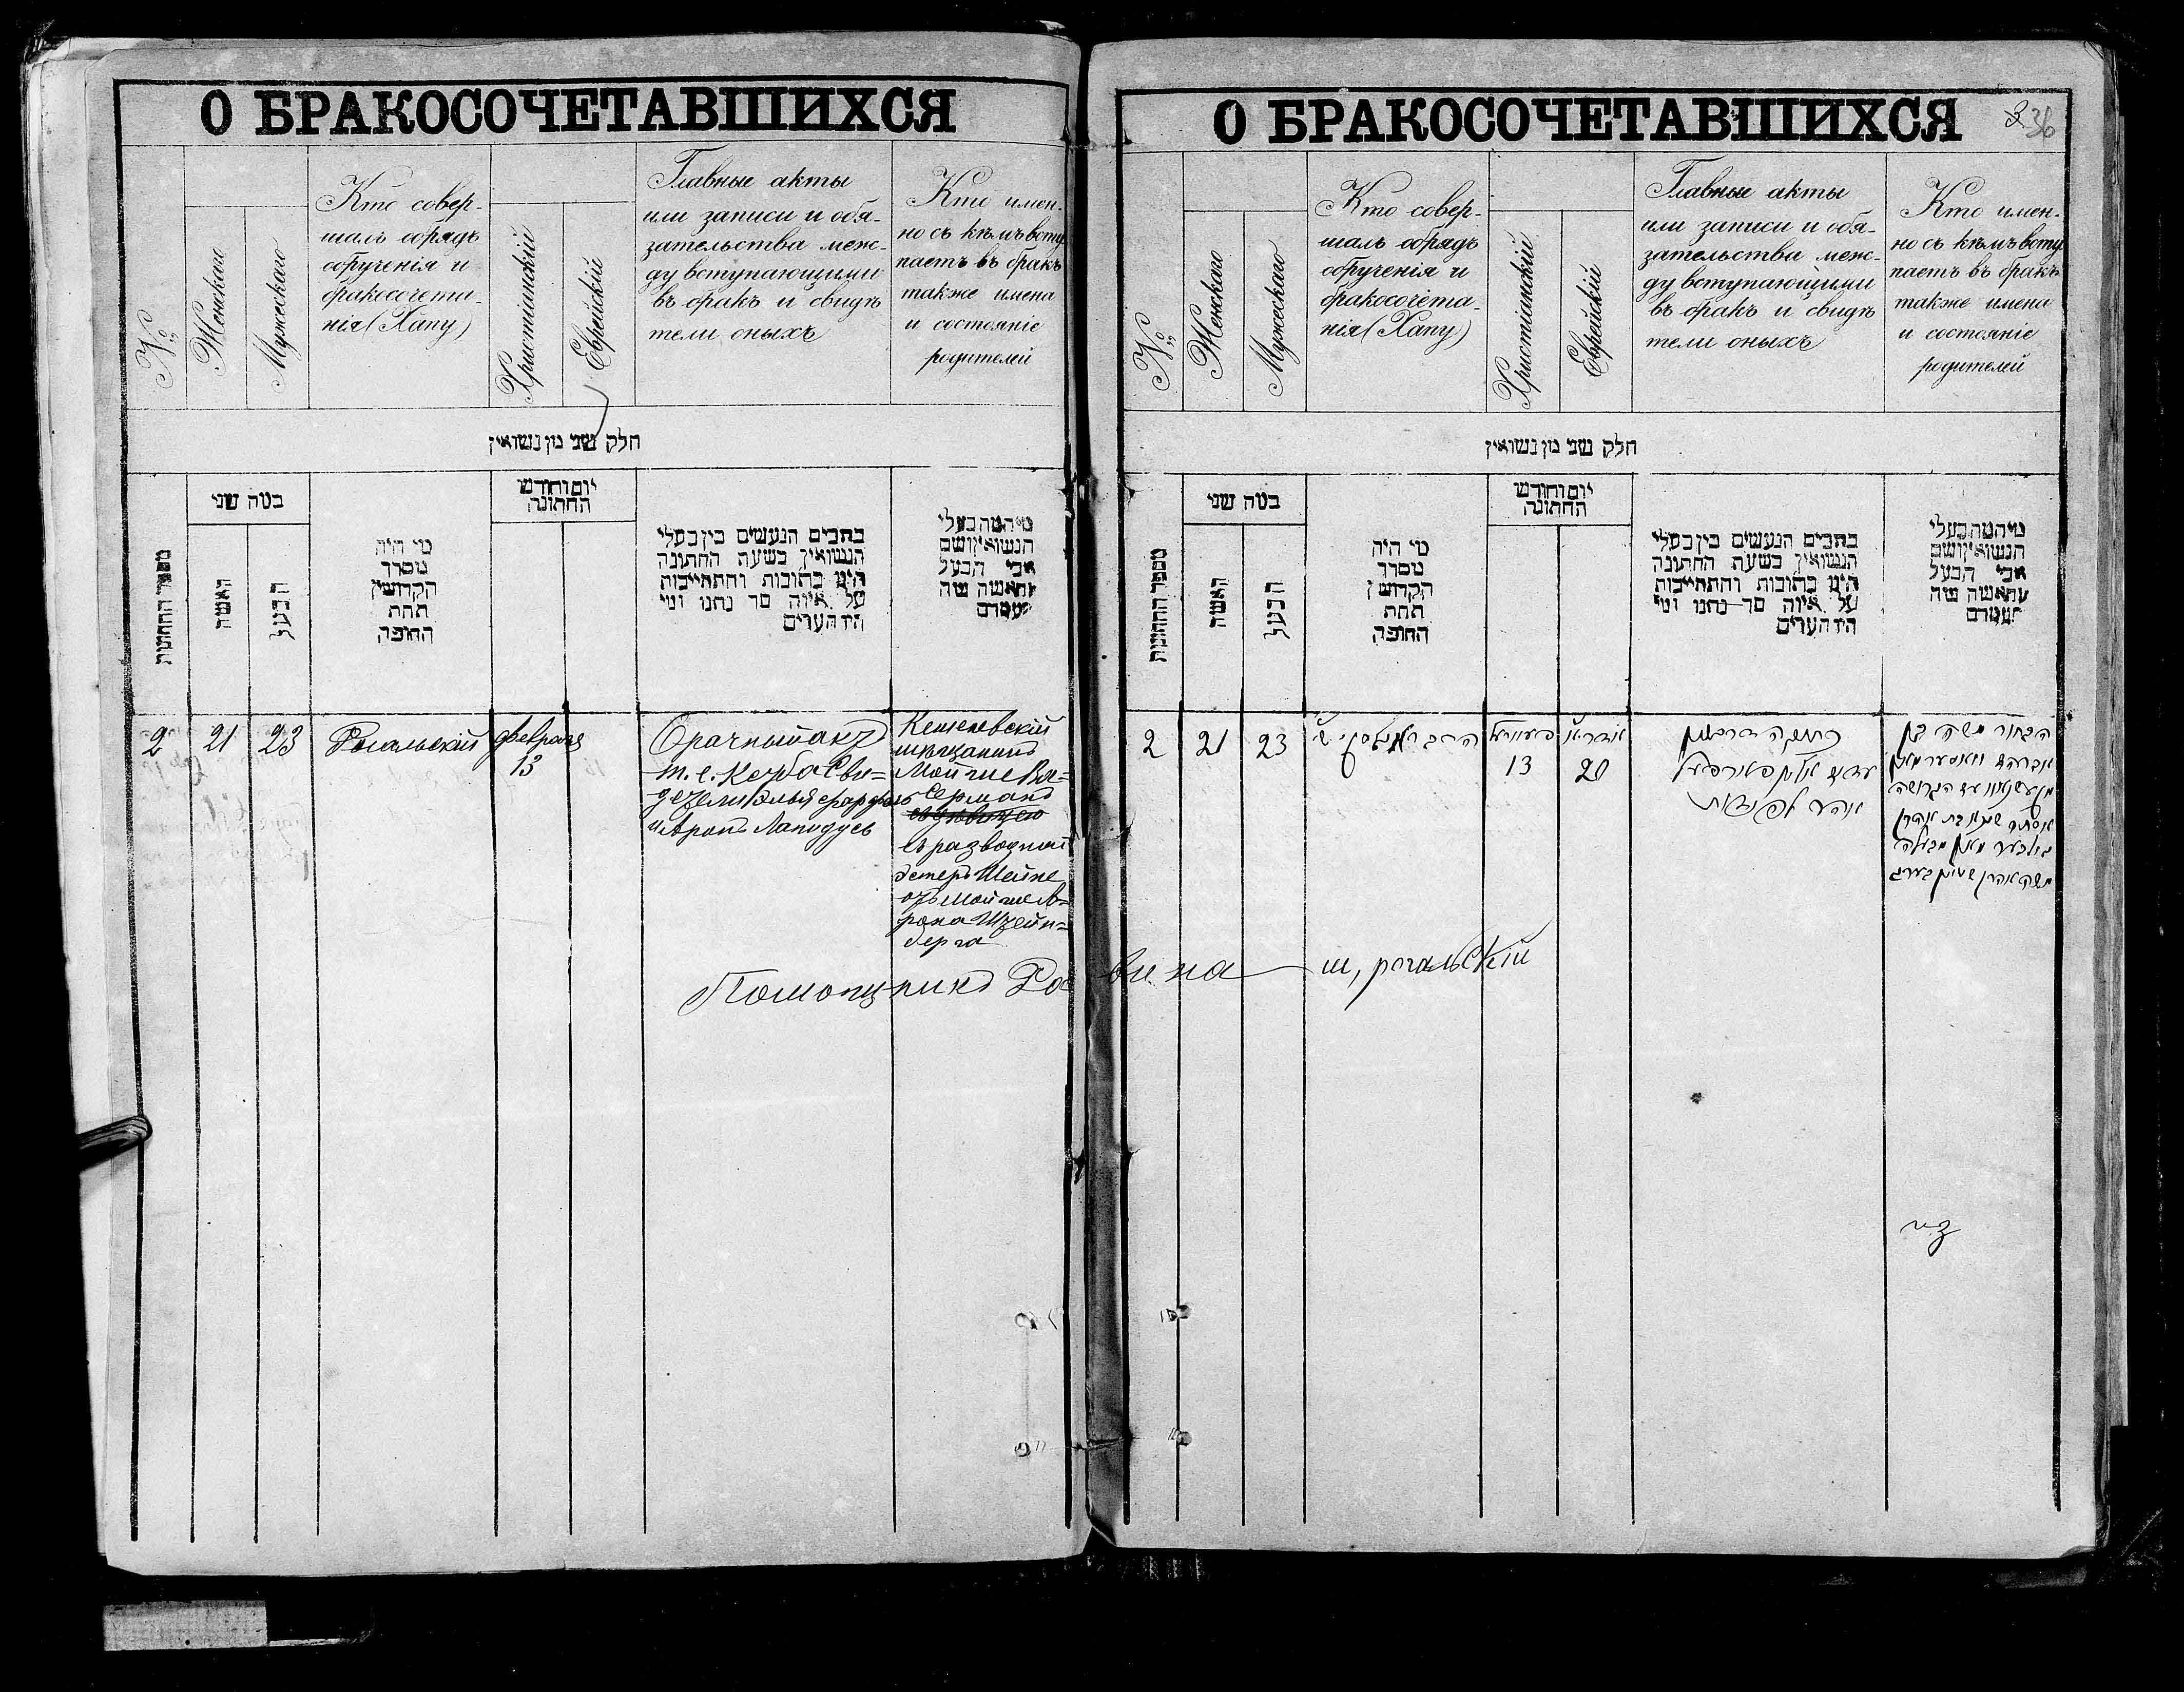 О БРАКОСОЧЕТАВШИХСЯ
№
Женскаго
Мужескаго
Кто совер-
шалъ обрядъ
обрученія и
бракосочета-
нія (Хапу)
Христіанскій
Еврейскій
Главные акты
или записи и обя-
зательства меж-
ду вступающими
въ бракъ и свидѣ
тели оныхъ
Кто имен-
но съ кѣмъ всту
паетъ въ бракъ
также имена
и состояніе
родителей
חלק שני מן נשואין
מספר החתונות
כמה שני
האשה
הבעל
מי היה
מסדר
הקדושין
תחת
החופה
יום וחודש
החתונה
כתבים הנעשים בין בעלי
הנשואין בשעת החתונה
היינו כתובות והתחייבות
על איזה סך נתנו ומי
היו העדים
מי המה בעלי
הנשואין ושם
אבי הבעל
והאשה
2
21
23
Рогальскій
февраля
13
Брачный актъ
т. е. Кетба Сви-
дѣтели
и Аронъ
мѣщанинъ
Мойше Ва-
серманъ
съ разводной
Эстеръ Шейне
отъ Мойше А-
рона Штейн-
берга
Помощникъ Раввина Ш, рогальскій
О БРАКОСОЧЕТАВШИХСЯ
36
№
Женскаго
Мужескаго
Кто совер-
шалъ обрядъ
обрученія и
бракосочета-
нія (Хапу)
Христіанскій
Еврейскій
Главные акты
или записи и обя-
зательства меж-
ду вступающими
въ бракъ и свидѣ
тели оныхъ
Кто имен-
но съ кѣмъ всту
паетъ въ бракъ
также имена
и состояніе
родителей
חלק שני מן נשואין
מספר החתונות
כמה שני
האשה
הבעל
מי היה
מסדר
הקדושין
תחת
החופה
יום וחודש
החתונה
כתבים הנעשים בין בעלי
הנשואין בשעת החתונה
היינו כתובות והתחייבות
על איזה סך נתנו ומי
היו העדים
מי המה בעלי
הנשואין ושם
אבי הבעל
והאשה
2
21
23
13
20
הבחור משה בן
וואסערמאן
הגרושה
בת אהרן
משה אהרן שטיינבערג